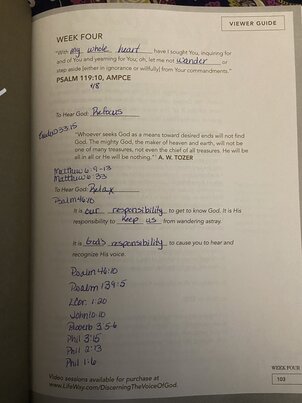 VIEWER GUIDE
WEEK FOUR
"With my whole heart have I sought You, inquiring for
and of You and yearning for You; oh, let me not wander or
step aside [either in ignorance or willfully] from Your commandments."
PSALM 119:10, AMPCE
To Hear God: Refocus
"Whoever seeks God as a means toward desired ends will not find
God. The mighty God, the maker of heaven and earth, will not be
one of many treasures, not even the chief of all treasures. He will be
all in all or He will be nothing." A. W. TOZER
Matthew 6:9-13
Matthew 6:33
To Hear God: Relax
Psalm 46:10
It is our responsibility to get to know God. It is His
responsibility to keep us from wandering astray.
It is God's responsibility to cause you to hear and
recognize His voice.
Psalm 46:10
Psalm 139:5
2 Cor. 1:20
John 10:10
Proverb 3:5-6
Phil 3:15
Phil 2:13
Phil 1:6
WEEK FOUR
103
Video sessions available for purchase at
www.LifeWay.com/DiscerningTheVoiceOfGod.